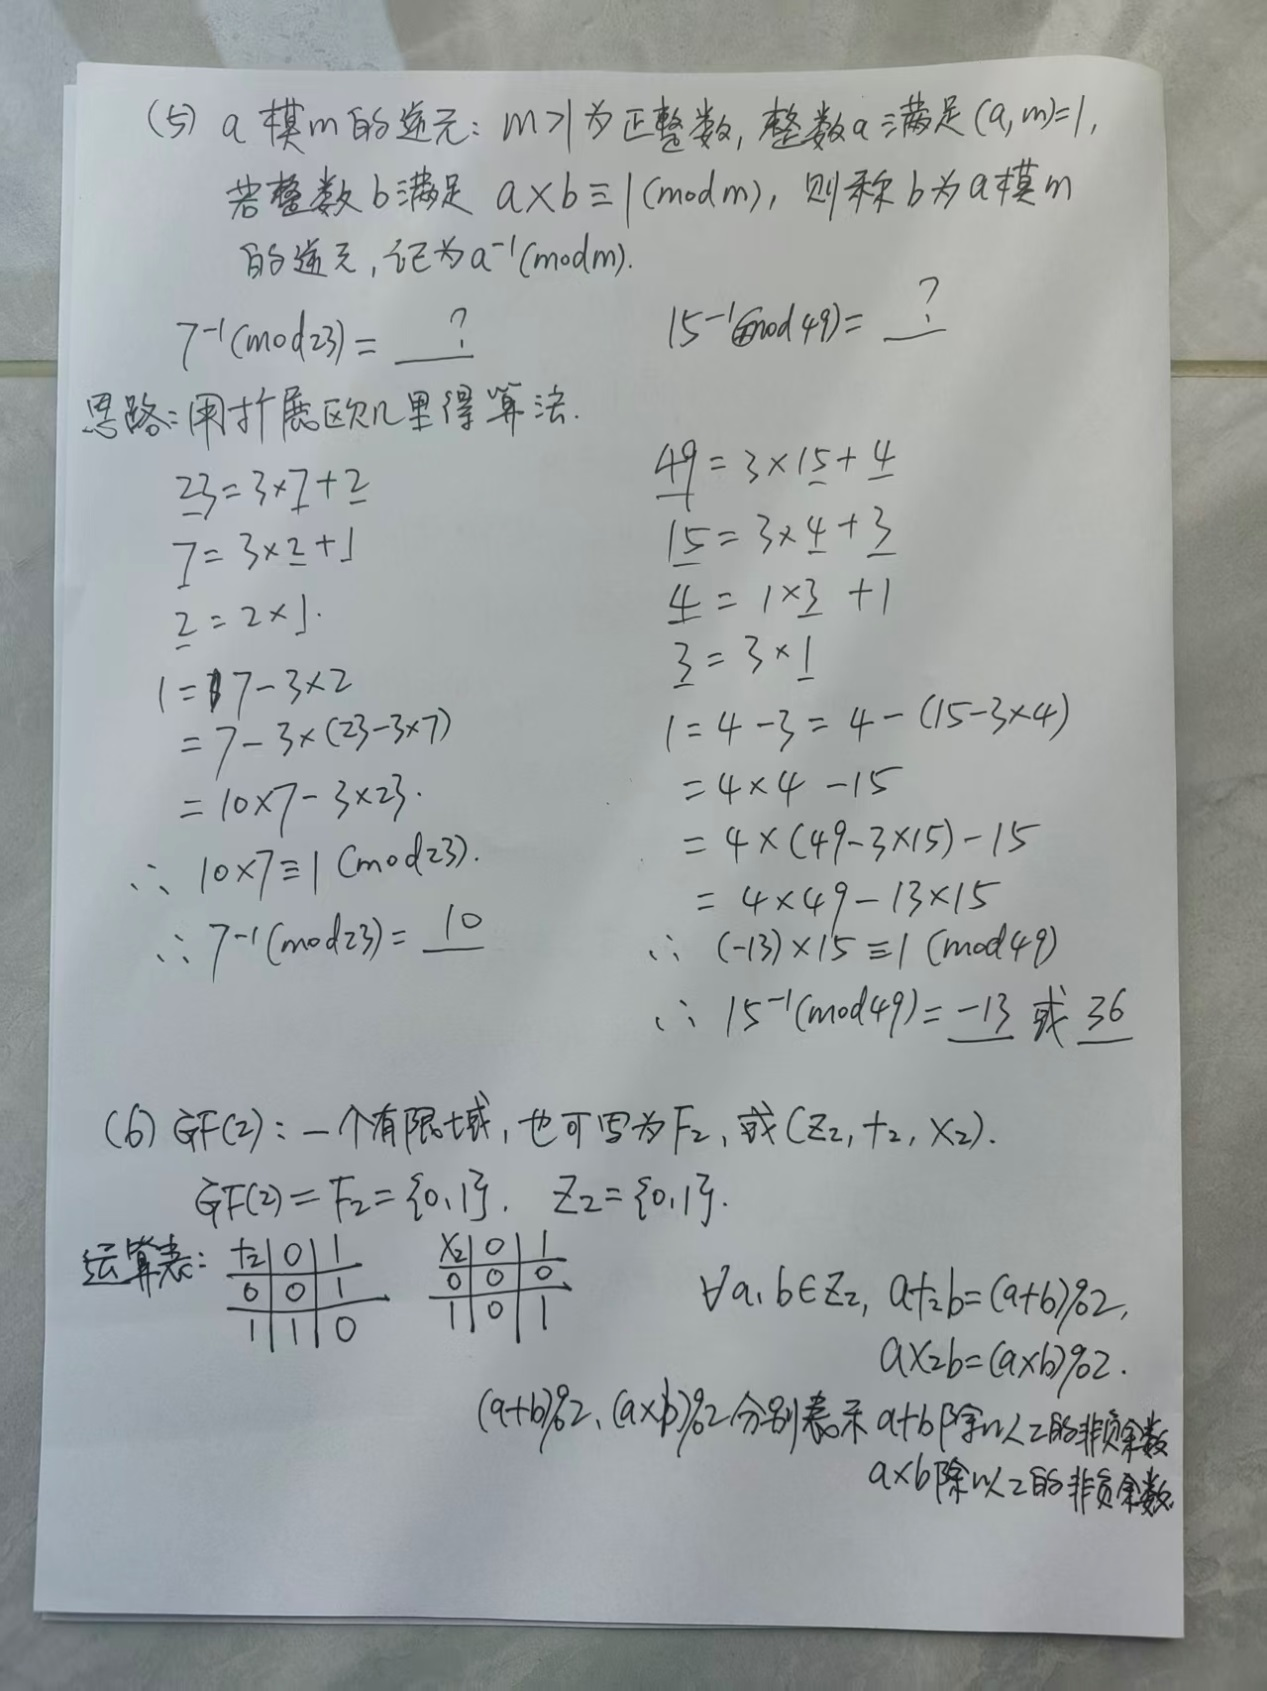 (5) a模m的逆元: m>1为正整数, 整数a满足(a,m)=1,
若整数b满足 a×b≡1(modm), 则称b为a模m
的逆元, 记为a⁻¹(modm).
7⁻¹(mod23)= ?
思路:用扩展欧几里得算法.
23=3×7+2
7=3×2+1
2=2×1.
1=7-3×2
=7-3×(23-3×7)
=10×7-3×23.
∴ 10×7≡1 (mod23).
∴ 7⁻¹(mod23)= 10
15⁻¹(mod49)= ?
49=3×15+4
15=3×4+3
4=1×3+1
3=3×1
1=4-3=4-(15-3×4)
=4×4-15
=4×(49-3×15)-15
=4×49-13×15
∴ (-13)×15≡1 (mod49)
∴ 15⁻¹(mod49)=-13 或 36
(6) GF(2): 一个有限域, 也可写为F₂, 或(Z₂, +₂, ×₂).
GF(2)=F₂={0,1}. Z₂={0,1}.
运算表:
+₂ 0 1
0 0 1
1 1 0
×₂ 0 1
0 0 0
1 0 1
∀a,b∈Z₂, a+₂b=(a+b)%2,
a×₂b=(a×b)%2.
(a+b)%2、(a×b)%2分别表示a+b除以2的非负余数
a×b除以2的非负余数.